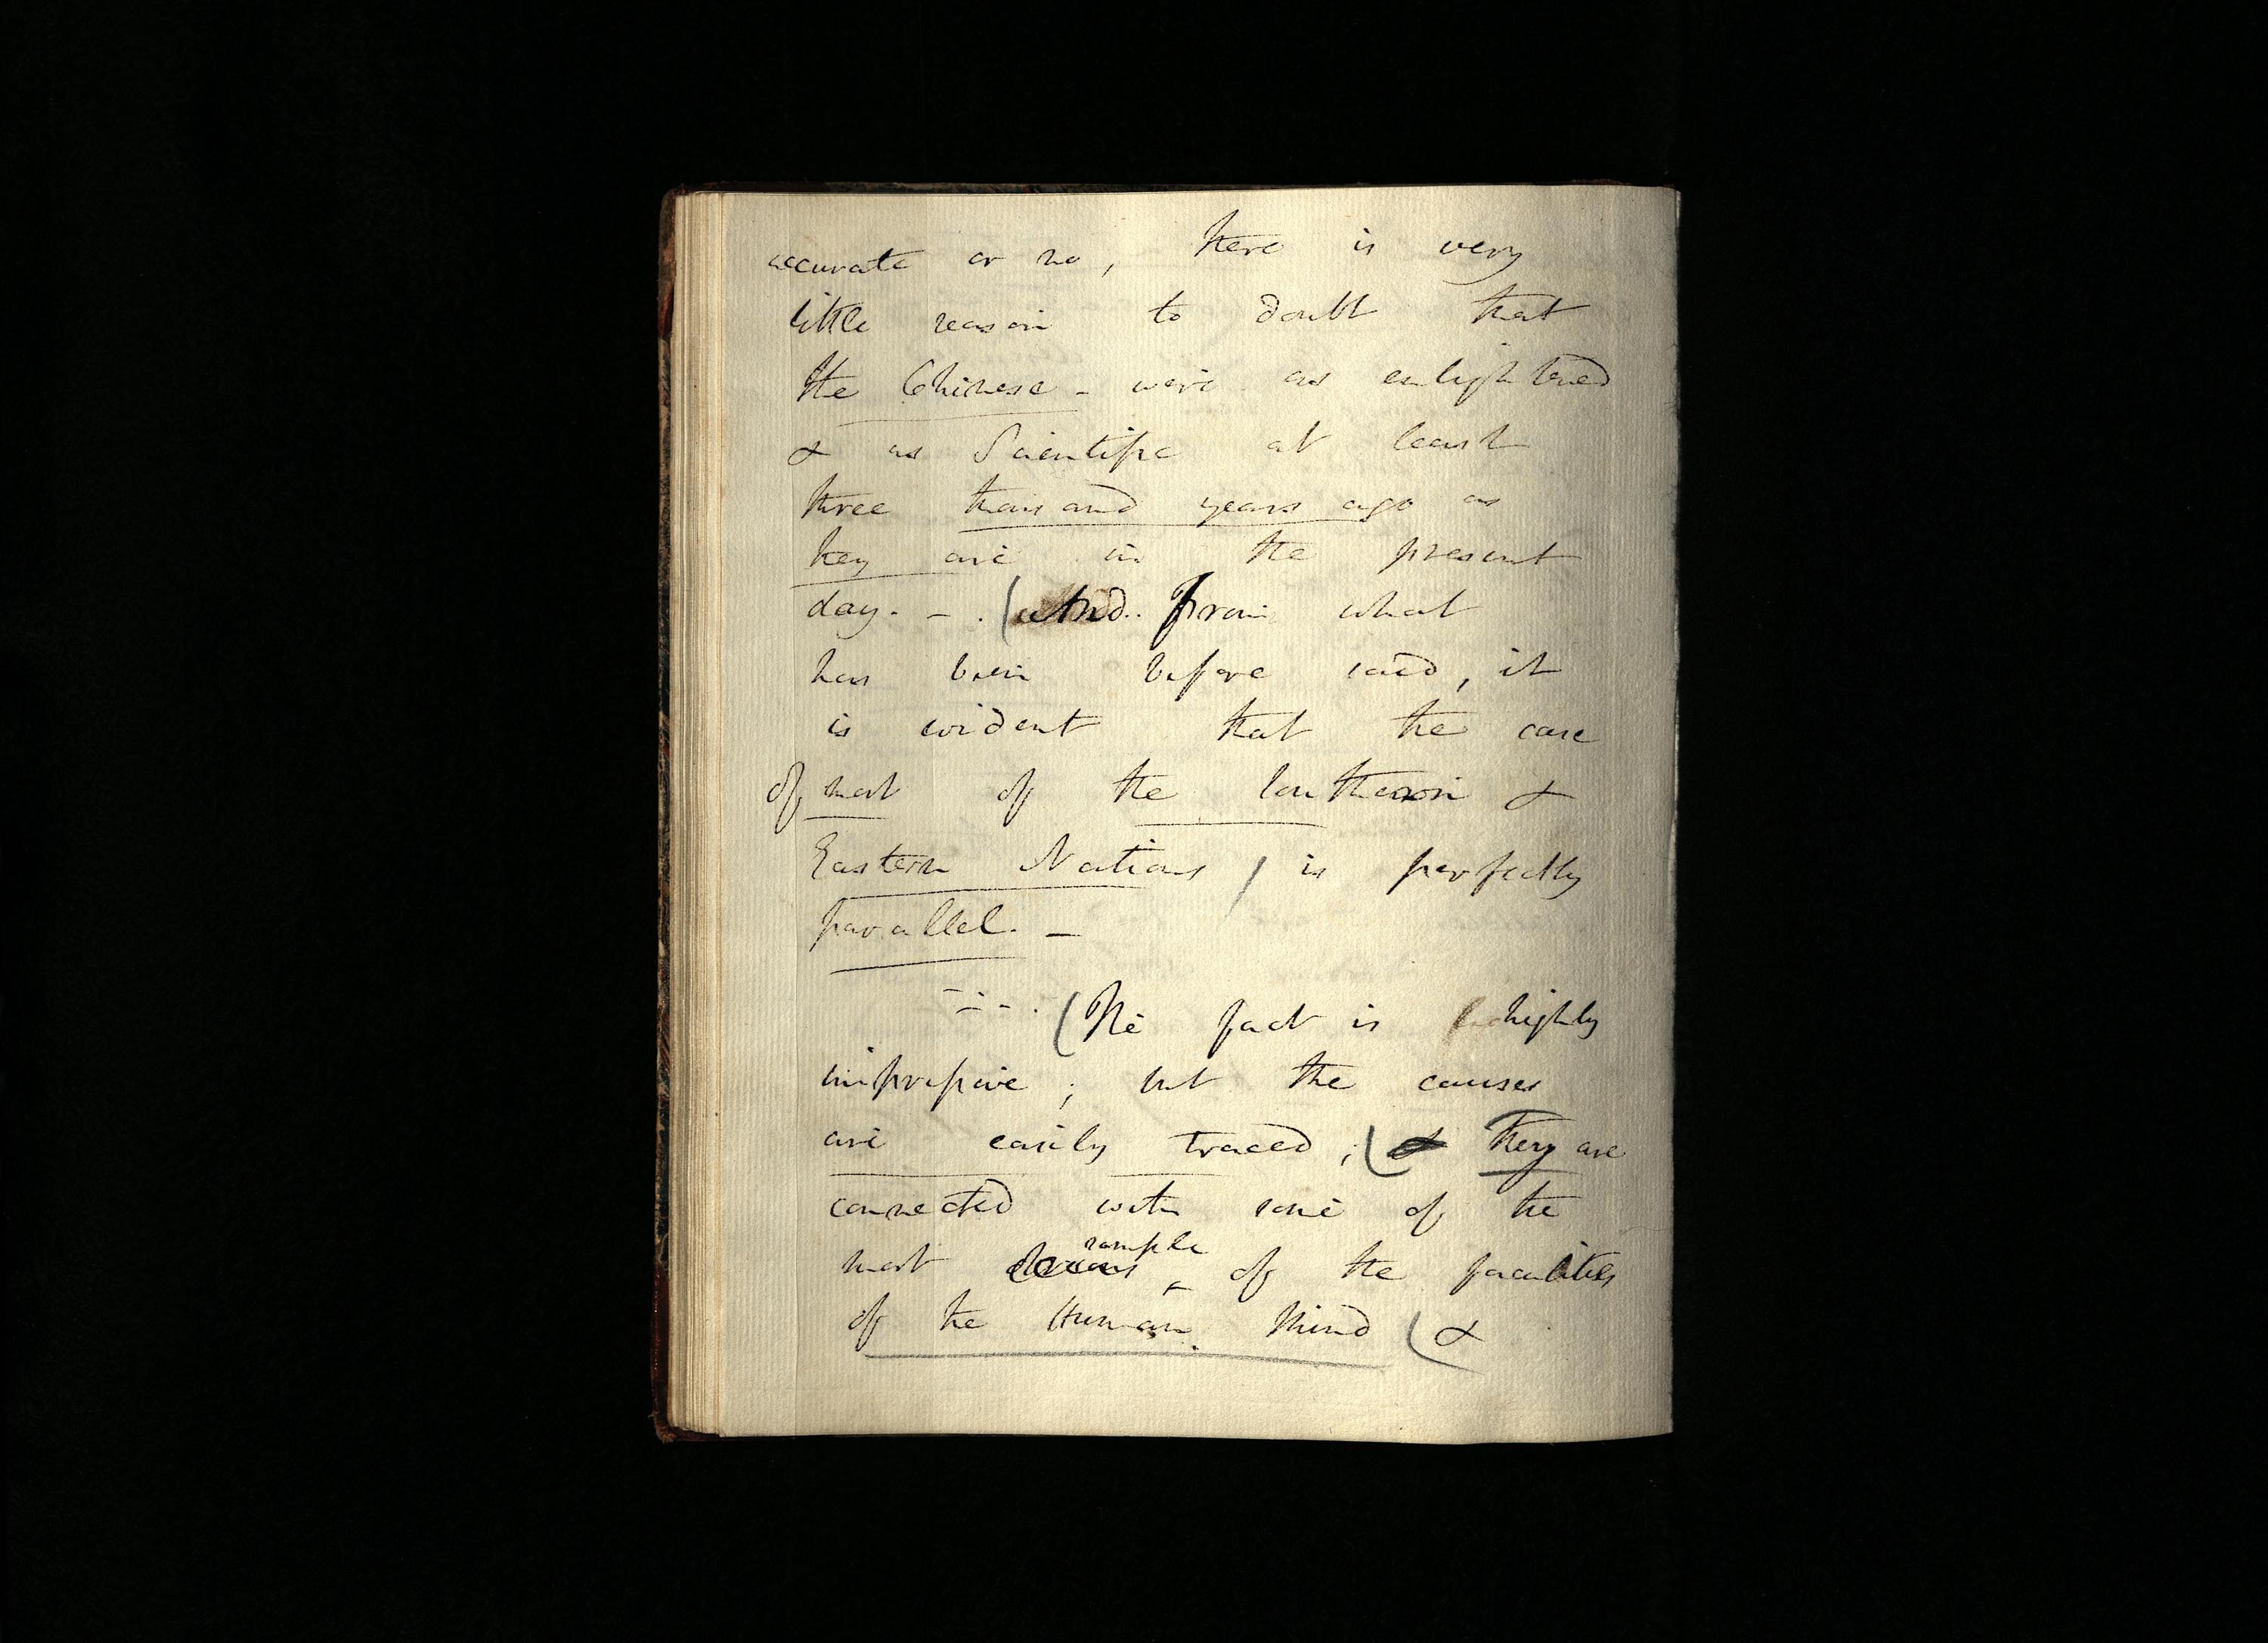 accurate or no, there is very
little reason to doubt that
the Chinese - were as enlightened
& as Scientific at least
three thousand years ago as
they are in the present
day. - . (And. From what
has been before said, it
is evident that the case
of most of the Southern &
Eastern Nations / is perfectly
parallel. -
- - - . (The fact is highly
impressive; but the causes
are easily traced; (& they are
connected with some of the
most simple of the faculties
of the Human Mind (&